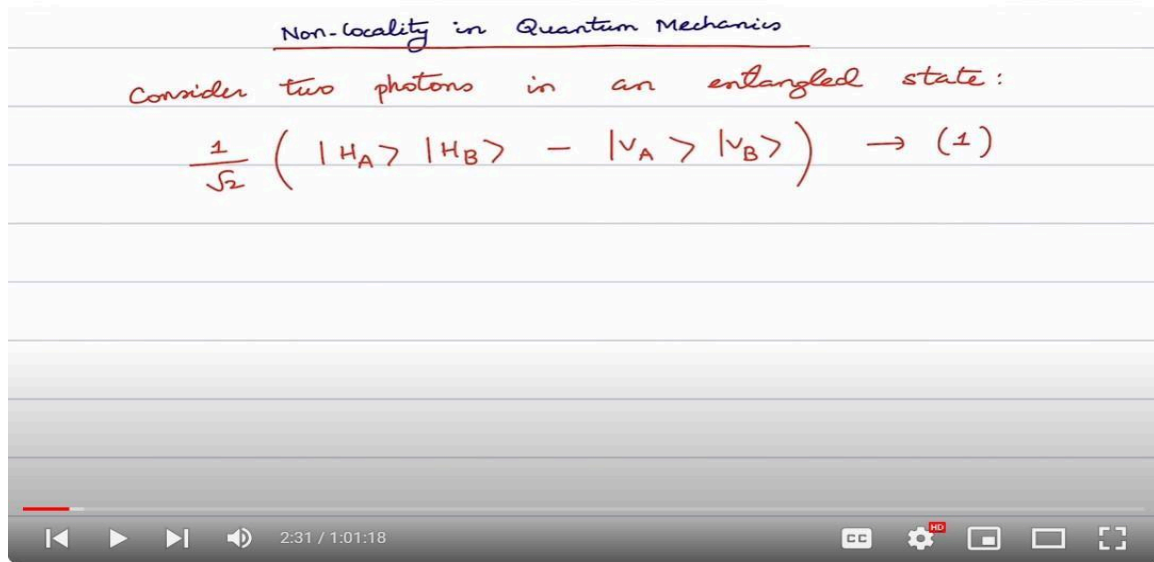 Non-locality in Quantum Mechanics
Consider two photons in an entangled state:
1/√2 ( |H_A> |H_B> - |V_A> |V_B> ) → (1)
2:31 / 1:01:18 CC HD